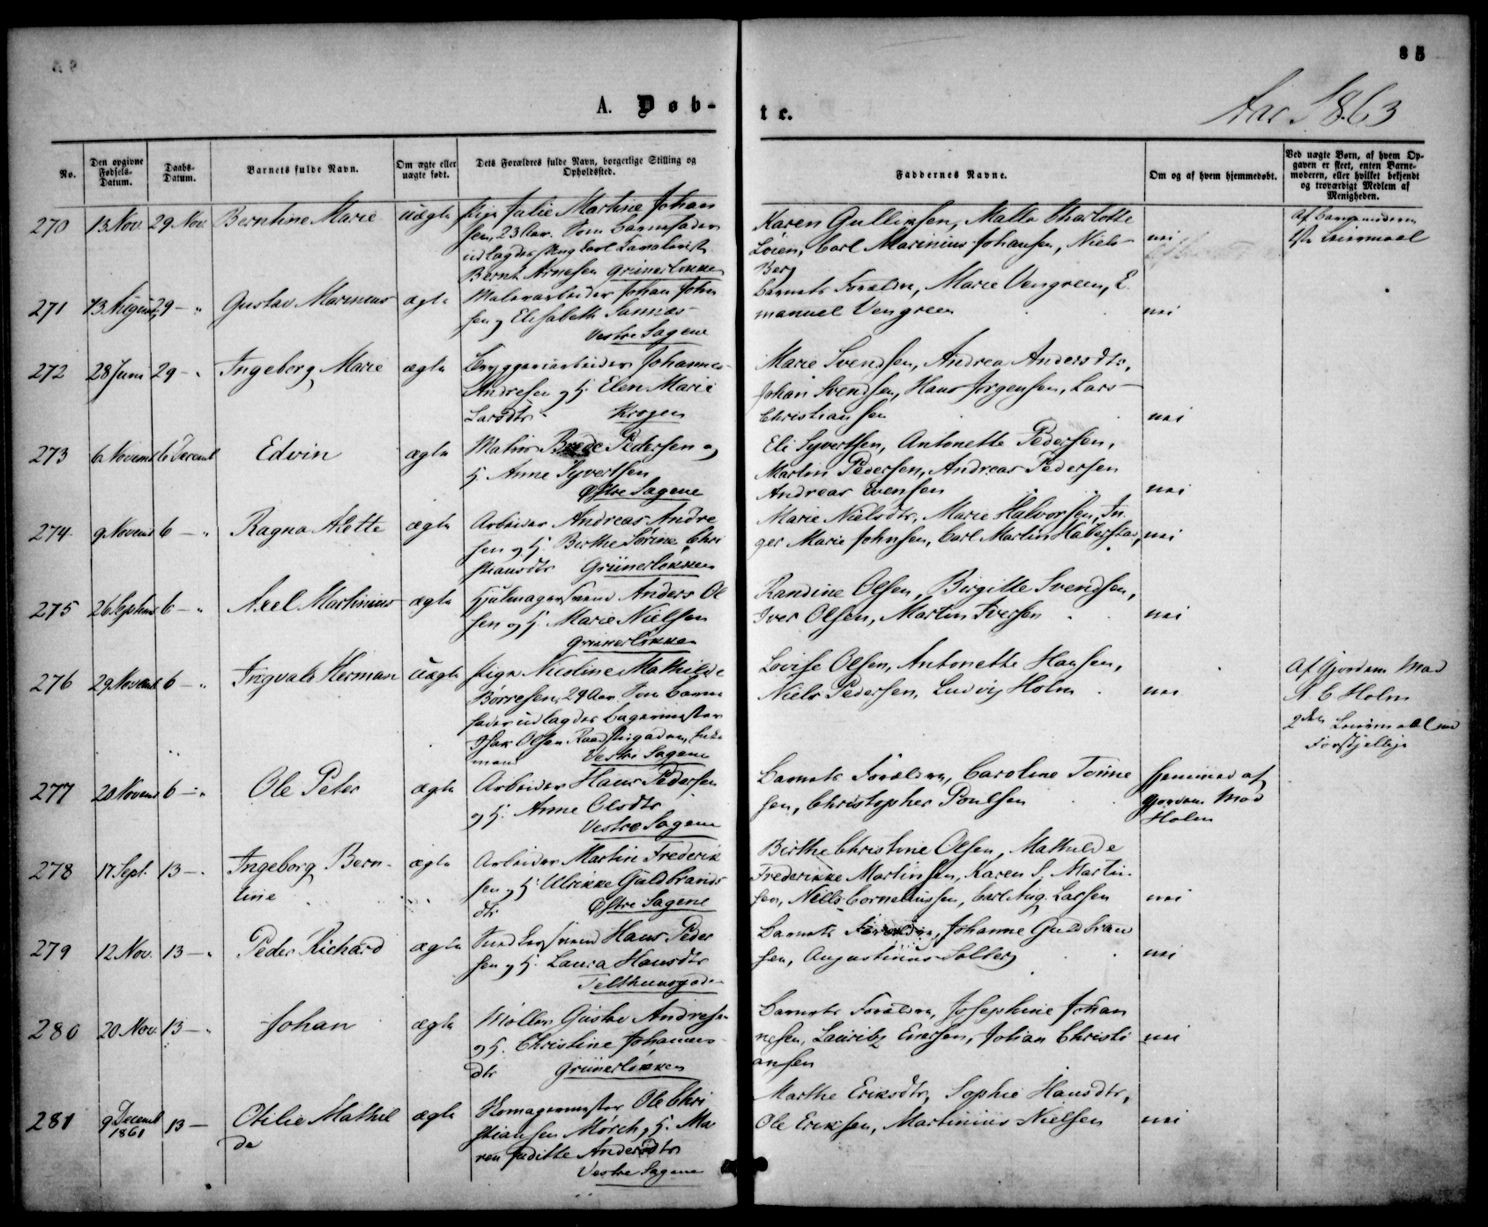 85
A. Døb-
te.
Aar 1863
No.
Den opgivne Fødsels-Datum.
Daabs-Datum.
Barnets fulde Navn.
Om ægte eller uægte født.
Dets Forældres fulde Navn, borgerlige Stilling og Opholdssted.
Faddernes Navne.
Om og af hvem hjemmedøbt.
Ved uægte Børn, af hvem Opgaven er skeet, enten Barnemoderen, eller hvilket bekjendt og troværdigt Medlem af Menigheden.
270 13 Nov. 29 Nov. Berntine Marie uægte Pige Julie Martine Johan
sen, 23 Aar. Som Barnefader
udlagdes Carl
Bernt Arnesen Grünerløkken
Karen Gulliksen, Mathe Charlotte
Løien, Carl Marinius Johansen, Niels
Berg
nei
Af Barnemoderen
1ste Leiermaal
271 13 August 29 - " Gustav Marinius ægte Malerarbeider Johan John
sen og Elisabeth Sannæs
Vestre Sagene
Barnets Forældre, Marie Vengreen, E
manuel Vengreen
nei
272 28 Juni 29 - " Ingeborg Marie ægte Bryggeriarbeider Johannes
Andresen og H. Elen Marie
Larsdtr. Krogen
Marie Svendsen, Andrea Andersdtr.,
Johan Svendsen, Hans Jørgensen, Lars
Christiansen
nei
273 6 Novemb 6 Decemb Edvin ægte Brede Pedersen og
H. Anne Syvertsen
Østre Sagene
Eli Syvertsen, Antonette Pedersen,
Martin Pedersen, Andreas Pedersen
Andreas Evensen
nei
274 9 Novemb 6 - " Ragna Lotte ægte Arbeider Andreas Andre
sen og H. Birthe Sørine Chri
stiansdtr Grünerløkken
Marie Nielsdtr., Marie Halvorsen, In
ger Marie Johnsen, Carl Martin
nei
275 26 Septemb 6 - " Axel Martinius ægte Hjulmagersvend Anders Ol
sen og H. Marie Nielsen
Grünerløkken
Randine Olsen, Birgitte Svendsen,
Iver Olsen, Martin Iversen
nei
276 29 Novemb 6 - " Ingvald Herman uægte Pige Nicoline Mathilde
Børresen, 29 Aar. Som Barne
fader udlagdes Bagermester
Isak Olsen
Vestre Sagene
Lovise Olsen, Antonette Hansen,
Niels Pedersen, Ludvig Holm
nei
Af Gjordem. Mad
A C Holm
2det Leiermaal med
Forskjellige
277 20 Novemb 6 - " Ole Peter ægte Arbeider Hans Pedersen
og H. Anne Olsdtr
Vestre Sagene
Barnets Forældre, Caroline Tønne
sen, Christopher Poulsen
Hjemmed. af
Gjordem. Mad
Holm
278 17 Sept. 13 - " Ingeborg Bern-
tine
ægte Arbeider Martin Frederik
sen og H. Ulrikke Guldbrands
dtr Østre Sagene
Birthe Christine Olsen, Mathilde
Frederikke Martinsen, Karen S. Martin
sen, Niels Corneliussen, Carl Aug. Larsen
nei
279 12 Nov. 13 - " Peder Richard ægte Snedkersvend Hans Peder
sen og H. Laura Hansdtr
Telthusgaden
Barnets Forældre, Johanne Guldbran
sen, Augustinius Solberg
nei
280 20 Nov. 13 - " Johan ægte Møller Gustav Andresen
og H. Christine Johannes
dtr Grünerløkken
Barnets Forældre, Josephine Johan
nesen, Lauritz Enersen, Johan Christi
ansen
nei
281 9 Decemb
1861 13 - Otilie Mathil
de
ægte Skomagermester Ole Chri
stiansen Mørch, og H. Ma
ren Juditte Andersdtr
Vestre Sagene
Marthe Eriksdtr., Sophie Hansdtr.,
Ole Eriksen, Martinius Nielsen
nei